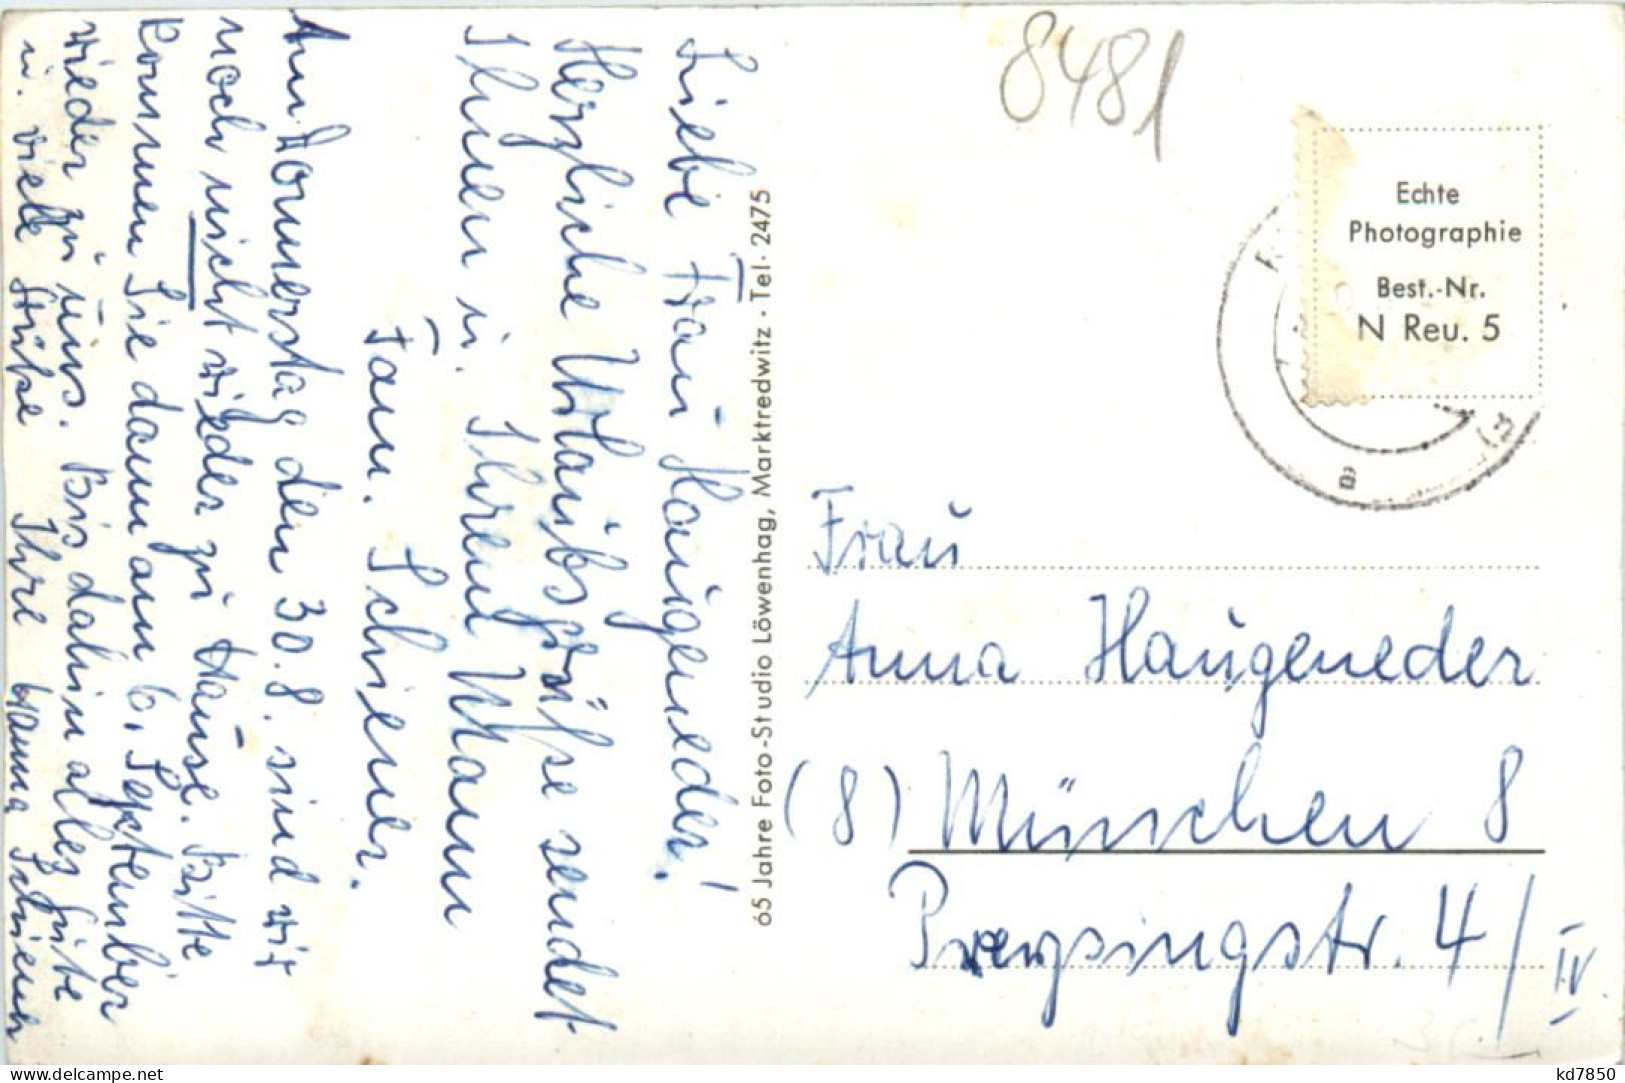 Liebe Frau Haugeneder!
Herzliche Urlaubsgrüße sendet
Ihnen u. Ihrem Mann
Fam. Schiener.
Am Donnerstag den 30.8. sind wir
noch nicht wieder zu Hause. Bitte
kommen Sie dann am 6. September
wieder zu uns. Bis dahin alles Gute
u. viele Grüße Ihre Hanna Schiener
65 Jahre Foto-Studio Löwenhag, Marktredwitz · Tel. 2475
8481
Echte
Photographie
Best.-Nr.
N Reu. 5
Frau
Anna Haugeneder
(8) München 8
Preysingstr. 4/IV
kd7850